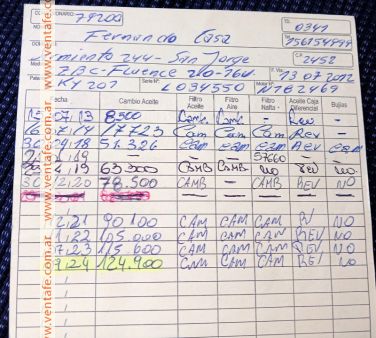 www.ventafe.com.ar - www.ventafe.com.ar - www.ventafe.com.ar
79200
0341
Fernando Casa
156154444
miento 244 - San Jorge
C.P. 2452
Fluence 2.0-16V
13 07 2012
KY 207 L034550
echa Cambio Aceite Filtro Aceite Filtro Aire Filtro Nafta Aceite Caja Diferencial Bujías
07/13 8.500 Camb. Camb. - Rev -
7/14 17723 Cam Cam Cam Rev -
18 51.326 cam cam cam Rev cam
19 57660
4 19 63.300 CAMB CAMB NO REV NO
12 20 78.500 CAMB - CAMB REV NO
2 21 90 100 CAM CAM CAM R/ NO
1 22 105.000 CAM CAM CAM REV NO
7 23 115 600 CAM CAM CAM REV NO
7 24 124.900 CAM CAM CAM REV NO